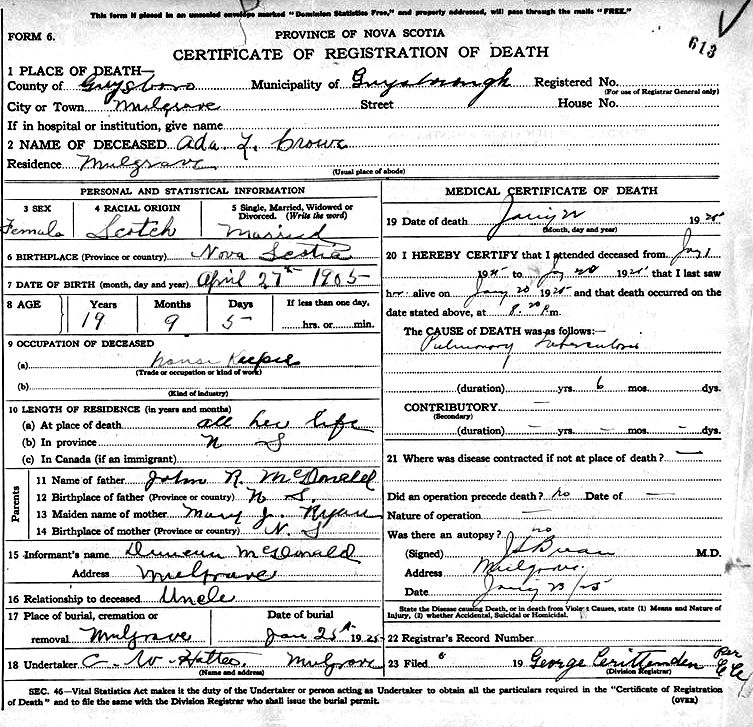 This form if placed in an unsealed envelope marked "Dominion Statistics Free," and properly addressed, will pass through the mails "FREE."
FORM 6.
PROVINCE OF NOVA SCOTIA
613
CERTIFICATE OF REGISTRATION OF DEATH
1 PLACE OF DEATH—
County of Guysboro Municipality of Guysborough Registered No.
(For use of Registrar General only)
City or Town Mulgrave Street House No.
If in hospital or institution, give name
2 NAME OF DECEASED Ada Crowe
Residence Mulgrave
(Usual place of abode)
PERSONAL AND STATISTICAL INFORMATION
3 SEX 4 RACIAL ORIGIN 5 Single, Married, Widowed or Divorced. (Write the word)
Female Scotch Married
6 BIRTHPLACE (Province or country) Nova Scotia
7 DATE OF BIRTH (month, day and year) April 27th 1905
8 AGE Years Months Days If less than one day,
19 9 5 hrs. or min.
9 OCCUPATION OF DECEASED
(a) House Keeper
(Trade or occupation or kind of work)
(b)
(Kind of industry)
10 LENGTH OF RESIDENCE (in years and months)
(a) At place of death all her life
(b) In province N S
(c) In Canada (if an immigrant)
Parents
11 Name of father John R. McDonald
12 Birthplace of father (Province or country) N S.
13 Maiden name of mother Mary J. Ryan
14 Birthplace of mother (Province or country) N. S
15 Informant's name Duncan McDonald
Address Mulgrave
16 Relationship to deceased Uncle
17 Place of burial, cremation or removal Mulgrave Date of burial Jan 25th 1925
18 Undertaker C. W. Hattie Mulgrave
(Name and address)
MEDICAL CERTIFICATE OF DEATH
19 Date of death 1925
(Month, day and year)
20 I HEREBY CERTIFY that I attended deceased from Jany 1
1925 to Jany 20 1925 that I last saw
her alive on Jany 20 1925 and that death occurred on the
date stated above, at 8.20 P.m.
The CAUSE OF DEATH was as follows:—
Pulmonary Tuberculosis
(duration) yrs. 6 mos. dys.
CONTRIBUTORY —
(Secondary)
(duration) — yrs. — mos. — dys.
21 Where was disease contracted if not at place of death? —
Did an operation precede death? no Date of —
Nature of operation —
Was there an autopsy? no
(Signed) M.D.
Address Mulgrave
Date Jany 23/25
State the Disease causing Death, or in death from Violent Causes, state (1) Means and Nature of Injury, (2) whether Accidental, Suicidal or Homicidal.
22 Registrar's Record Number
23 Filed 19 George Crittenden per
(Division Registrar)
SEC. 46—Vital Statistics Act makes it the duty of the Undertaker or person acting as Undertaker to obtain all the particulars required in the "Certificate of Registration
of Death" and to file the same with the Division Registrar who shall issue the burial permit.
(OVER)